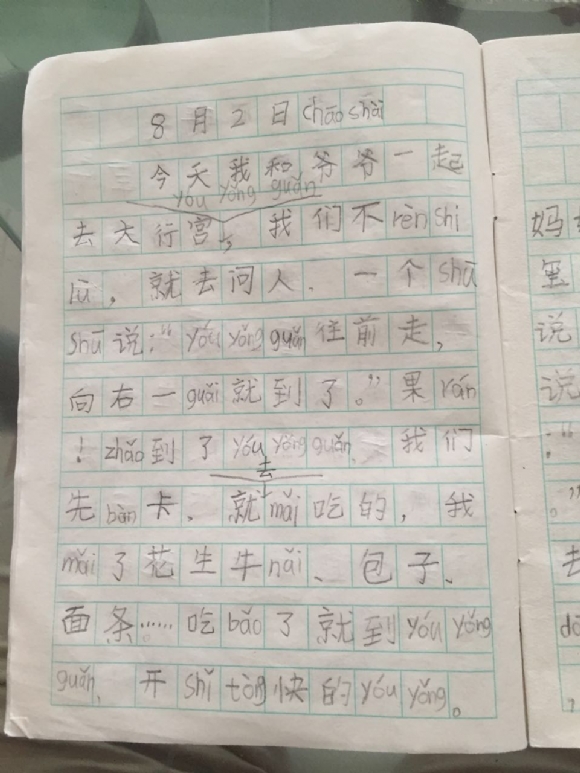 8月2日cháoshāi
今天我和爷爷一起
yóu yǒng guǎn
去大行宫, 我们不rèn shi
lù,就去问人、一个shū
shū说:“yóu yǒng guǎn往前走,
向右一guǎi就到了。”果rán
!zhǎo到了yóu yǒng guǎn、我们
去
先bàn卡、就mǎi吃的,我
mǎi了花生牛nǎi、包子、
面条……吃bǎo了就到yóu yǒng
guǎn、开shǐ tòng快的yóu yǒng。
妈
里
说
说
:“
。”
去